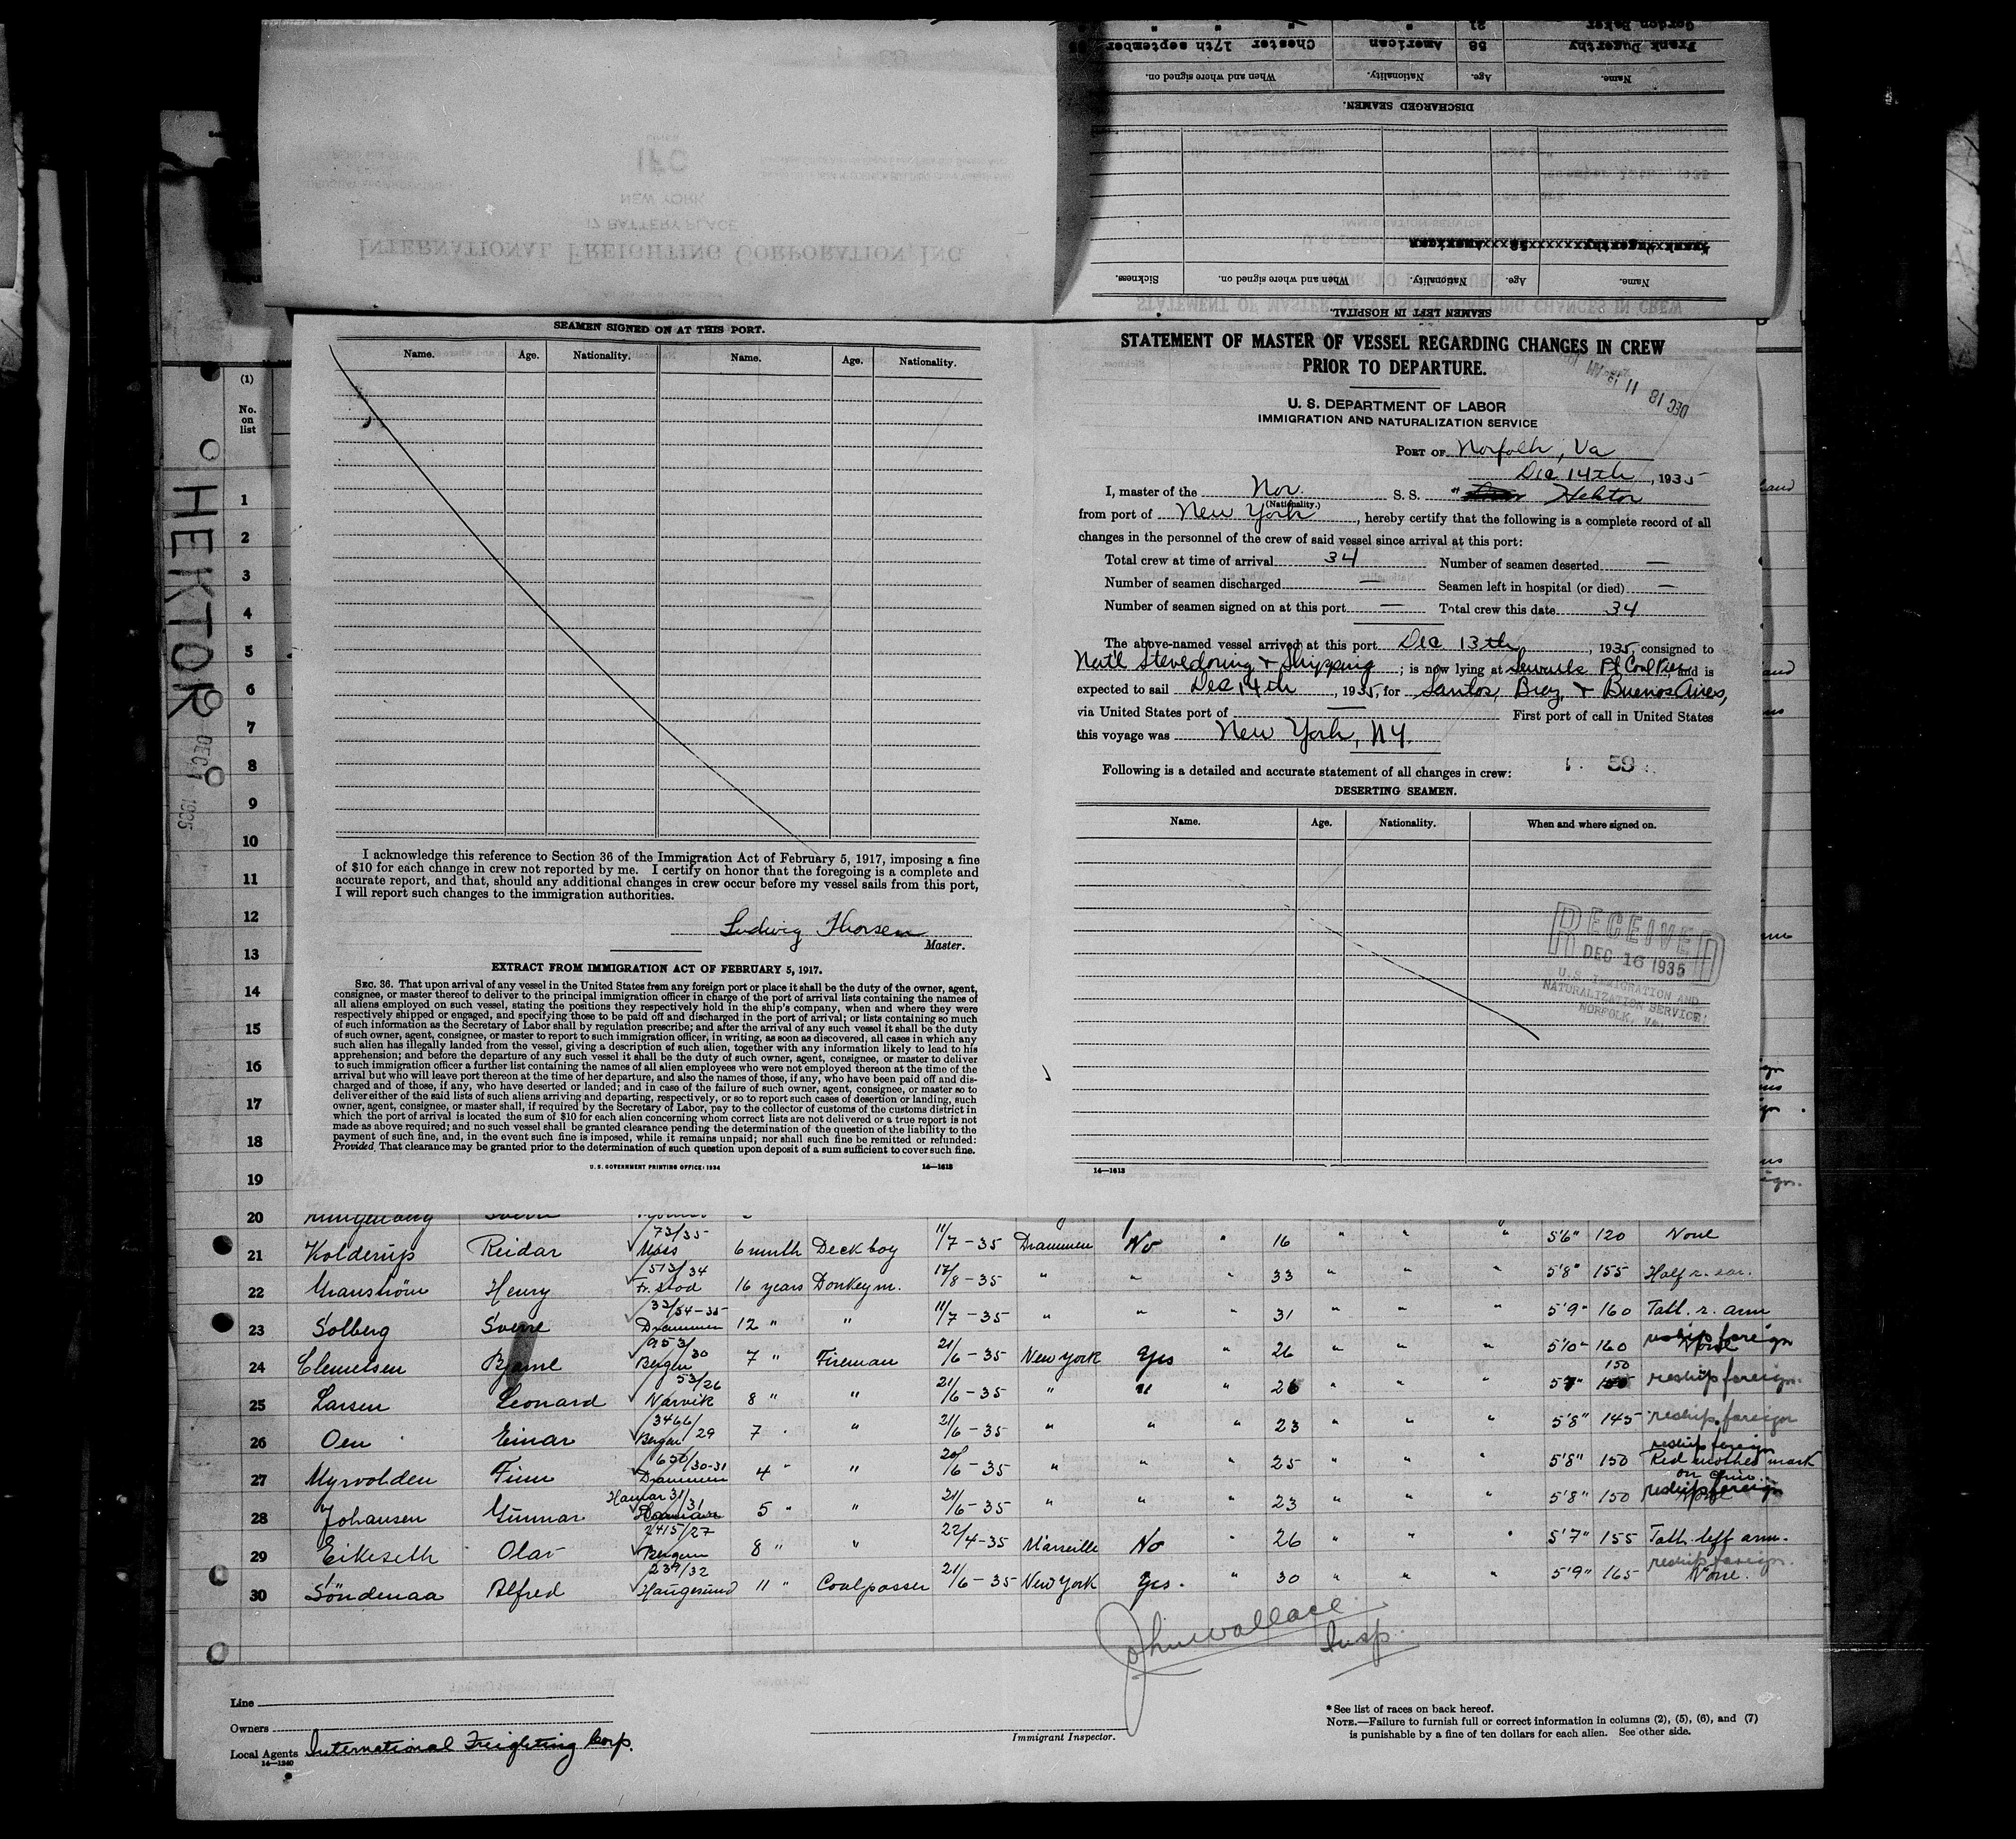 Gordon Baker 21 " " "
Frank Dugerthy 58 American Chester 17th september
Name. Age. Nationality. When and where signed on.
DISCHARGED SEAMEN.
Name. Age. Nationality. When and where signed on. Sickness.
SEAMEN LEFT IN HOSPITAL.
IFC
NEW YORK
17 BATTERY PLACE
INTERNATIONAL FREIGHTING CORPORATION, INC.
STATEMENT OF MASTER OF VESSEL REGARDING CHANGES IN CREW
SEAMEN SIGNED ON AT THIS PORT.
Name. Age. Nationality. Name. Age. Nationality.
I acknowledge this reference to Section 36 of the Immigration Act of February 5, 1917, imposing a fine
of $10 for each change in crew not reported by me. I certify on honor that the foregoing is a complete and
accurate report, and that, should any additional changes in crew occur before my vessel sails from this port,
I will report such changes to the immigration authorities.
Ludwig Thorsen
Master.
EXTRACT FROM IMMIGRATION ACT OF FEBRUARY 5, 1917.
SEC. 36. That upon arrival of any vessel in the United States from any foreign port or place it shall be the duty of the owner, agent,
consignee, or master thereof to deliver to the principal immigration officer in charge of the port of arrival lists containing the names of
all aliens employed on such vessel, stating the positions they respectively hold in the ship's company, when and where they were
respectively shipped or engaged, and specifying those to be paid off and discharged in the port of arrival; or lists containing so much
of such information as the Secretary of Labor shall by regulation prescribe; and after the arrival of any such vessel it shall be the duty
of such owner, agent, consignee, or master to report to such immigration officer, in writing, as soon as discovered, all cases in which any
such alien has illegally landed from the vessel, giving a description of such alien, together with any information likely to lead to his
apprehension; and before the departure of any such vessel it shall be the duty of such owner, agent, consignee, or master to deliver
to such immigration officer a further list containing the names of all alien employees who were not employed thereon at the time of the
arrival but who will leave port thereon at the time of her departure, and also the names of those, if any, who have been paid off and dis-
charged and of those, if any, who have deserted or landed; and in case of the failure of such owner, agent, consignee, or master so to
deliver either of the said lists of such aliens arriving and departing, respectively, or so to report such cases of desertion or landing, such
owner, agent, consignee, or master shall, if required by the Secretary of Labor, pay to the collector of customs of the customs district in
which the port of arrival is located the sum of $10 for each alien concerning whom correct lists are not delivered or a true report is not
made as above required; and no such vessel shall be granted clearance pending the determination of the question of the liability to the
payment of such fine, and, in the event such fine is imposed, while it remains unpaid; nor shall such fine be remitted or refunded:
Provided, That clearance may be granted prior to the determination of such question upon deposit of a sum sufficient to cover such fine.
U. S. GOVERNMENT PRINTING OFFICE: 1934 14—1613
STATEMENT OF MASTER OF VESSEL REGARDING CHANGES IN CREW
PRIOR TO DEPARTURE.
DEC 18 11
U. S. DEPARTMENT OF LABOR
IMMIGRATION AND NATURALIZATION SERVICE
PORT OF Norfolk, Va
Dec 14th, 1935
I, master of the Nor S. S. " Hektor
(Nationality.)
from port of New York, hereby certify that the following is a complete record of all
changes in the personnel of the crew of said vessel since arrival at this port:
Total crew at time of arrival 34 Number of seamen deserted —
Number of seamen discharged — Seamen left in hospital (or died) —
Number of seamen signed on at this port — Total crew this date 34
The above-named vessel arrived at this port Dec 13th, 1935, consigned to
Nat'l Stevedoring & Shipping; is now lying at Sewells Pt Coal Pier, and is
expected to sail Dec 14th, 1935, for Santos, Braz, & Buenos Aires,
via United States port of — First port of call in United States
this voyage was New York, NY.
Following is a detailed and accurate statement of all changes in crew: 59
DESERTING SEAMEN.
Name. Age. Nationality. When and where signed on.
RECEIVED
DEC 16 1935
U.S. IMMIGRATION AND
NATURALIZATION SERVICE
NORFOLK, VA.
14—1613
HEKTOR
DEC 1935
(1)
No.
on
list
1
2
3
4
5
6
7
8
9
10
11
12
13
14
15
16
17
18
19
20
21 Kolderup Reidar 73/35 Moss 6 month Deck boy 11/7-35 Drammen No " 16 " " " 5'6" 120 None
22 Granstrøm Henry 513/34 Fr.stad 16 years Donkeym. 17/8-35 " " " 33 " " " 5'8" 155 Half r. ear.
23 Solberg Sverre 33/34-35 Drammen 12 " " 11/7-35 " " " 31 " " " 5'9" 160 Tatt. r. arm
24 Clemetsen Bjarne 953/30 Bergen 7 " Fireman 21/6-35 New York Yes " 26 " " " 5'10" 160 reship foreign None
25 Larsen Leonard 53/26 Narvik 8 " " 21/6-35 " " " 26 " " " 5'7" 150 reship foreign.
26 Oen Einar 3466/29 Bergen 7 " " 21/6-35 " " " 23 " " " 5'8" 145 reship foreign
27 Myrvolden Finn 650/30-31 Drammen 4 " " 20/6-35 " " " 25 " " " 5'8" 150 reship foreign Red mother mark on chin.
28 Johansen Gunnar Hamar 31/31 5 " " 21/6-35 " " " 23 " " " 5'8" 150 reship foreign None
29 Eikeseth Olav 2415/27 Bergen 8 " " 22/4-35 Marseille No " 26 " " " 5'7" 155 Tatt. left arm.
30 Søndenaa Alfred 239/32 Haugesund 11 " Coalpasser 21/6-35 New York Yes. " 30 " " " 5'9" 165 reship foreign. None.
John Wallace
Insp.
Line
Owners
Local Agents International Freighting Corp.
14—1240
Immigrant Inspector.
* See list of races on back hereof.
NOTE.—Failure to furnish full or correct information in columns (2), (5), (6), and (7)
is punishable by a fine of ten dollars for each alien. See other side.